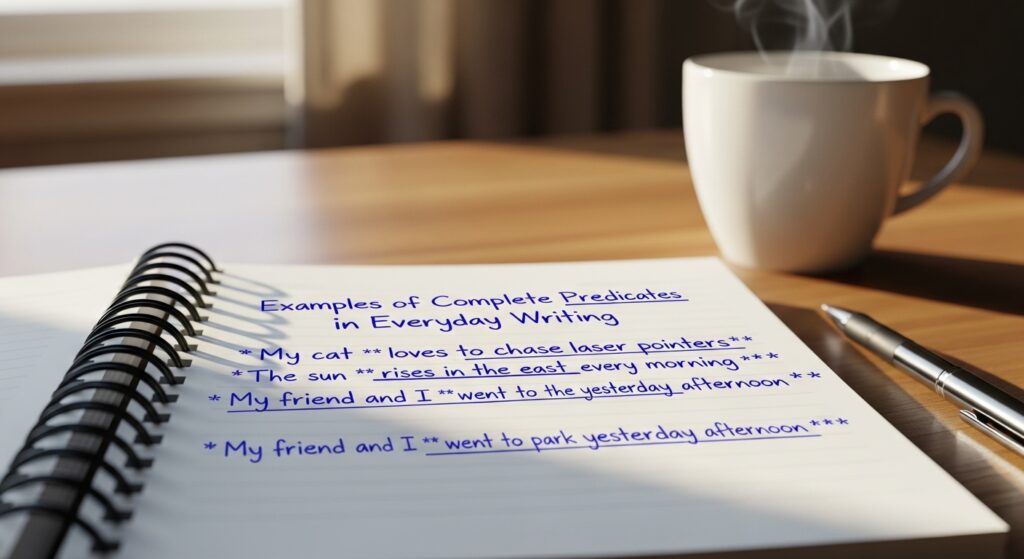 Examples of Complete Predicates
in Everyday Writing
* My cat ** loves to chase laser pointers**
* The sun ** rises in the east every morning***
* My friend and I ** went to the yesterday afternoon**
* My friend and I ** went to park yesterday afternoon***